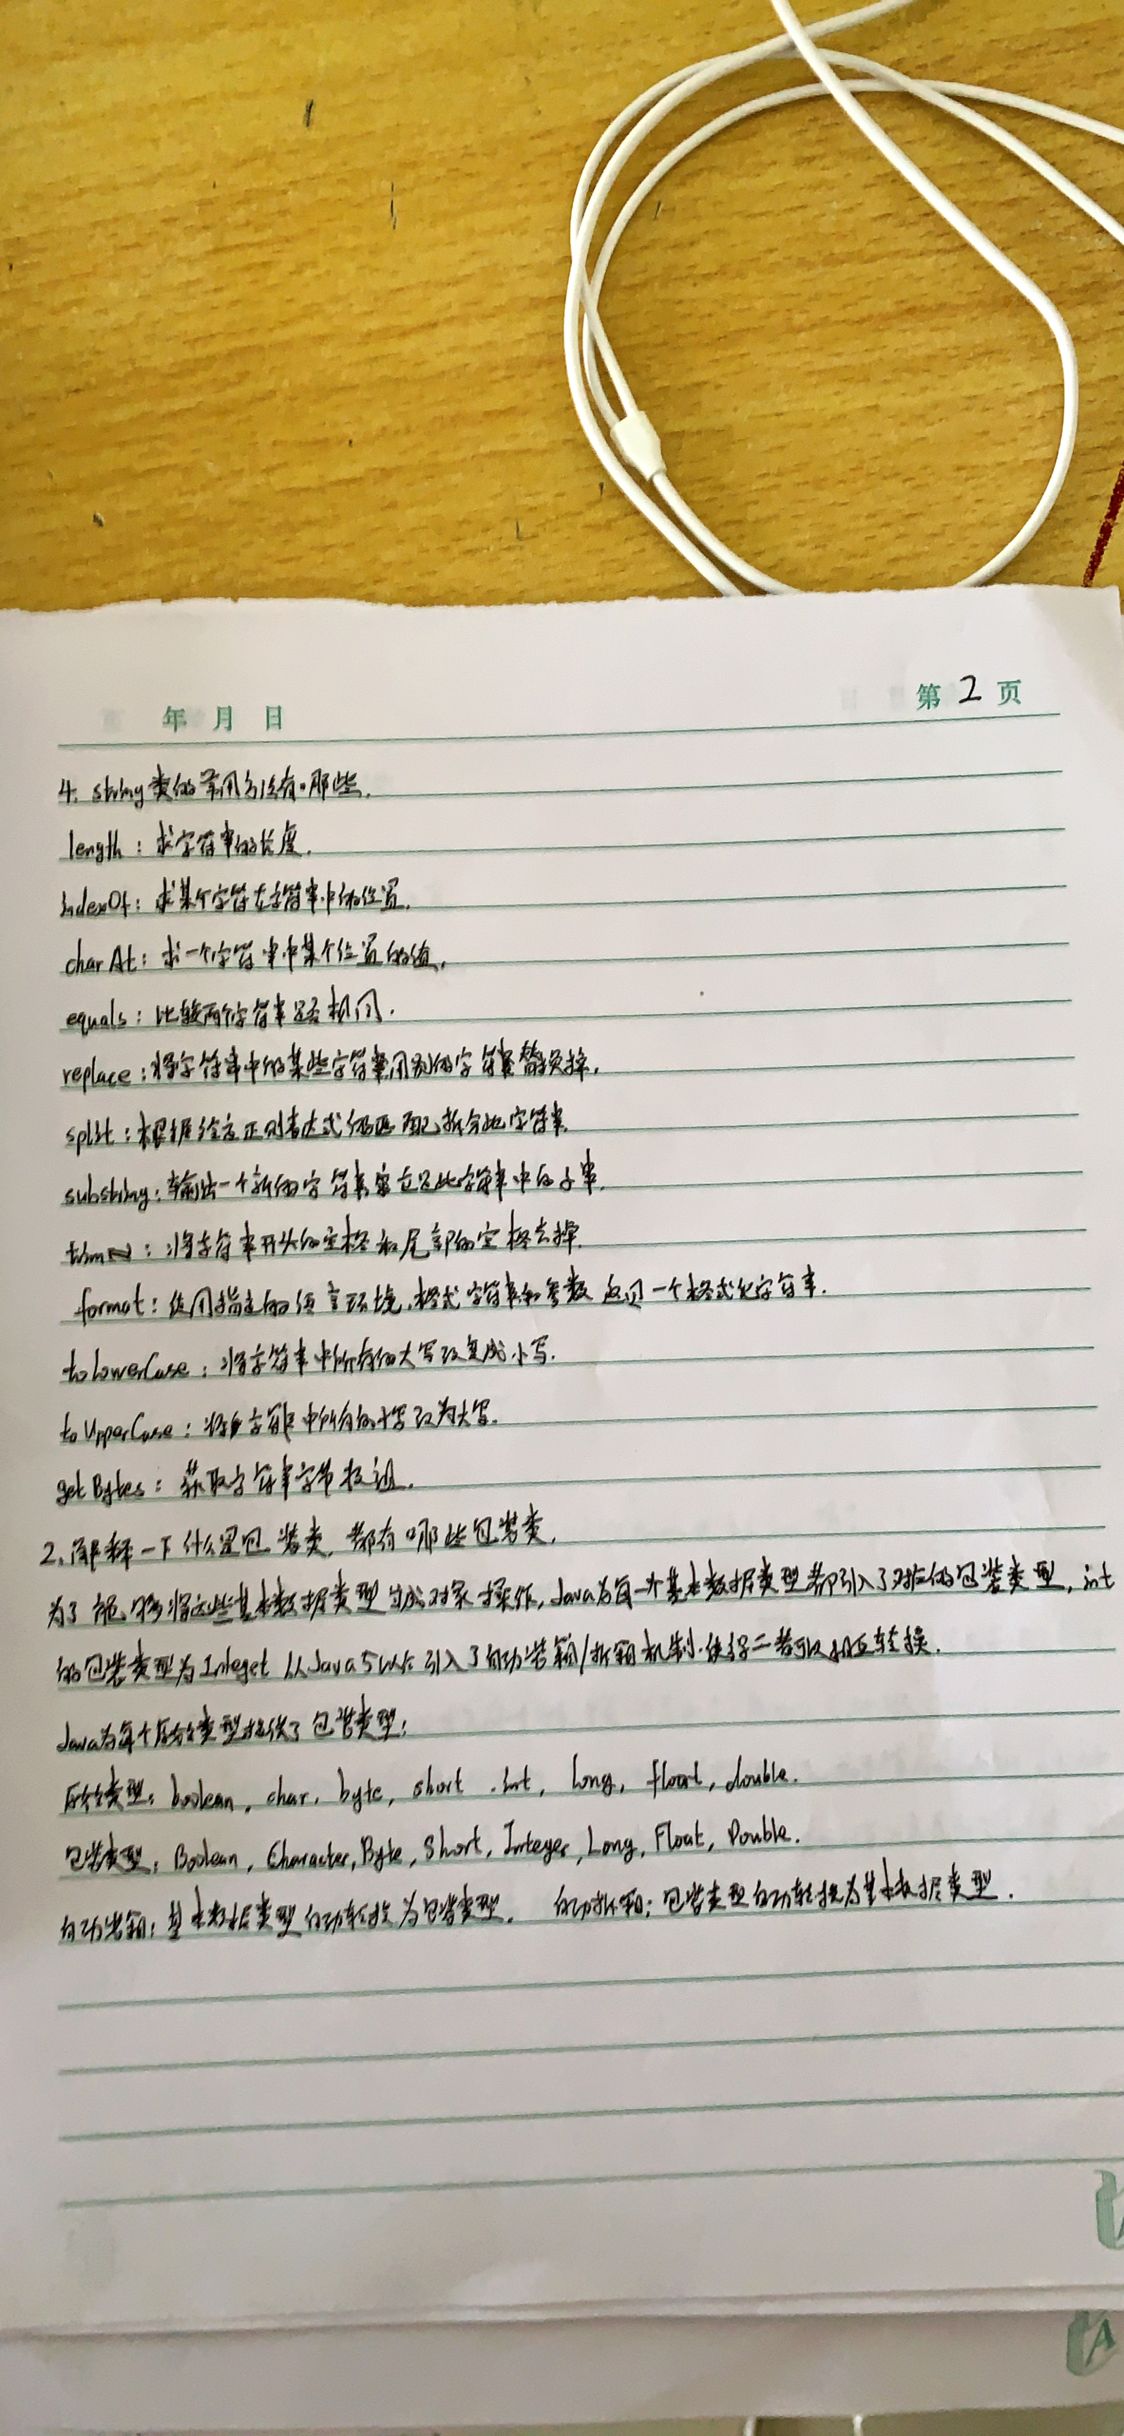 年 月 日
第 2 页
4. string类的常用方法有哪些.
length: 求字符串的长度.
indexOf: 求某个字符在字符串中的位置.
charAt: 求一个字符串中某个位置的值.
equals: 比较两个字符串是否相同.
replace: 将字符串中的某些字符串用别的字符串替换掉.
split: 根据给定正则表达式的匹配拆分此字符串.
substring: 输出一个新的字符串它是此字符串中的子串.
trim: 将字符串开头的空格和尾部的空格去掉.
format: 使用指定的语言环境,格式字符串和参数返回一个格式化字符串.
toLowerCase: 将字符串中所有的大写改变成小写.
toUpperCase: 将字符串中所有的小写改为大写.
getBytes: 获取字符串字节数组.
2.解释一下什么是包装类,都有哪些包装类.
为了能够将这些基本数据类型当成对象操作,Java为每一个基本数据类型都引入了对应的包装类型,int
的包装类型为Integet 从Java5以后引入了自动装箱/拆箱机制.使得二者可以相互转换.
Java为每个原始类型提供了包装类型:
原始类型: boolean, char, byte, short, int, long, float, double.
包装类型: Boolean, Character, Byte, Short, Integer, Long, Float, Double.
自动装箱: 基本数据类型自动转换为包装类型. 自动拆箱: 包装类型自动转换为基本数据类型.